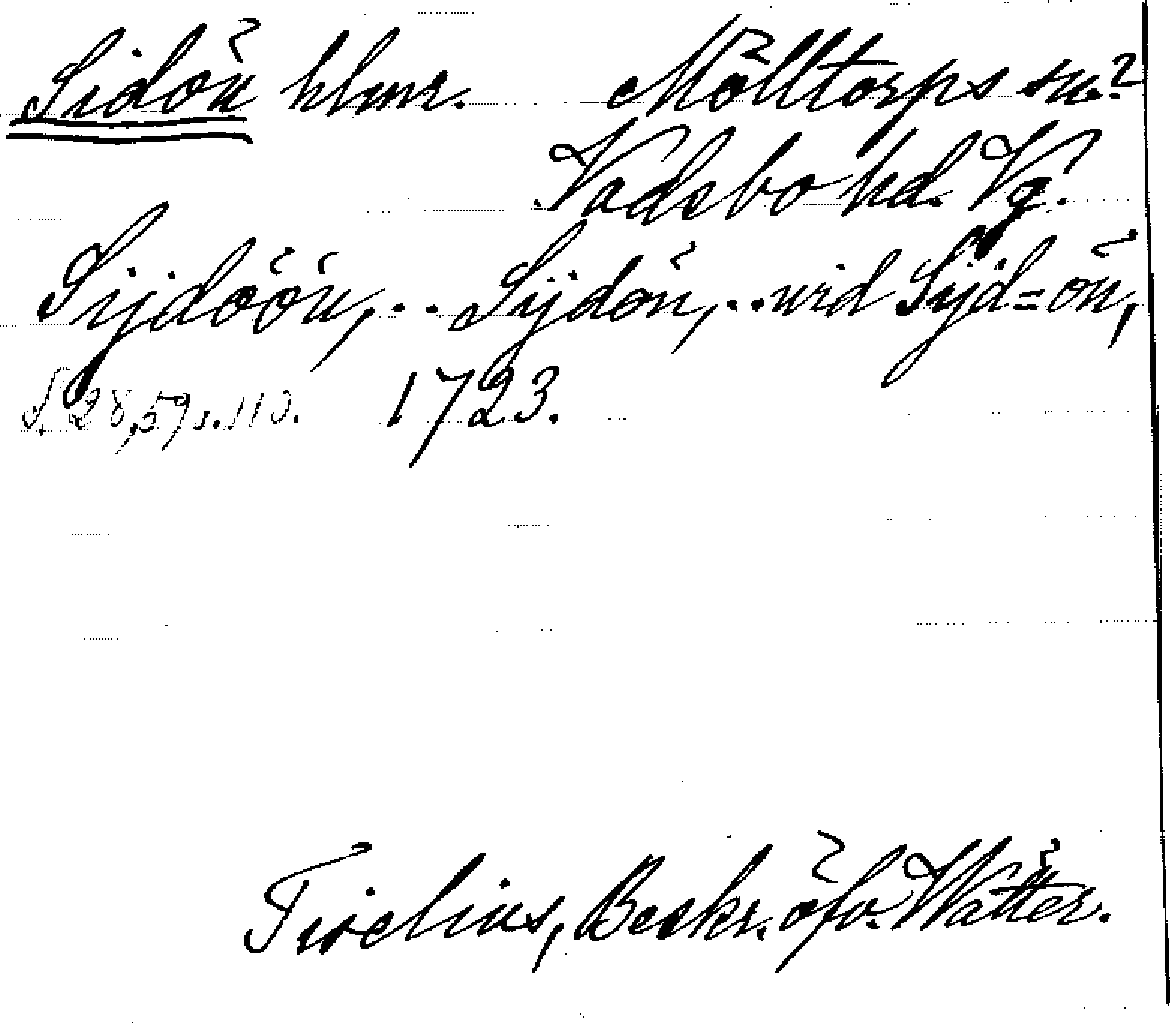 Sidön hlmr. Mölltorps sn.?
Vadsbo hd. Vg.
Sijdöön,.. Sijdön,..wid Sijd=ön,
s. 28,59 s.110. 1723.
Tiselius, Beskr. öfv. Wätter.